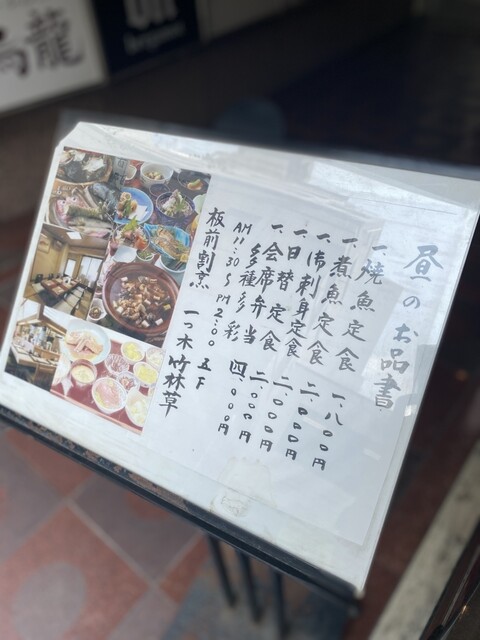 昼のお品書
一、焼魚定食 一、八〇〇円
一、煮魚定食 二、〇〇〇円
一、御刺身定食 二、〇〇〇円
一、日替定食 二、〇〇〇円
一、会席弁当 四、〇〇〇円
多種多彩
AM11:30〜PM2:00 五F
板前割烹 一つ木竹林草
龍